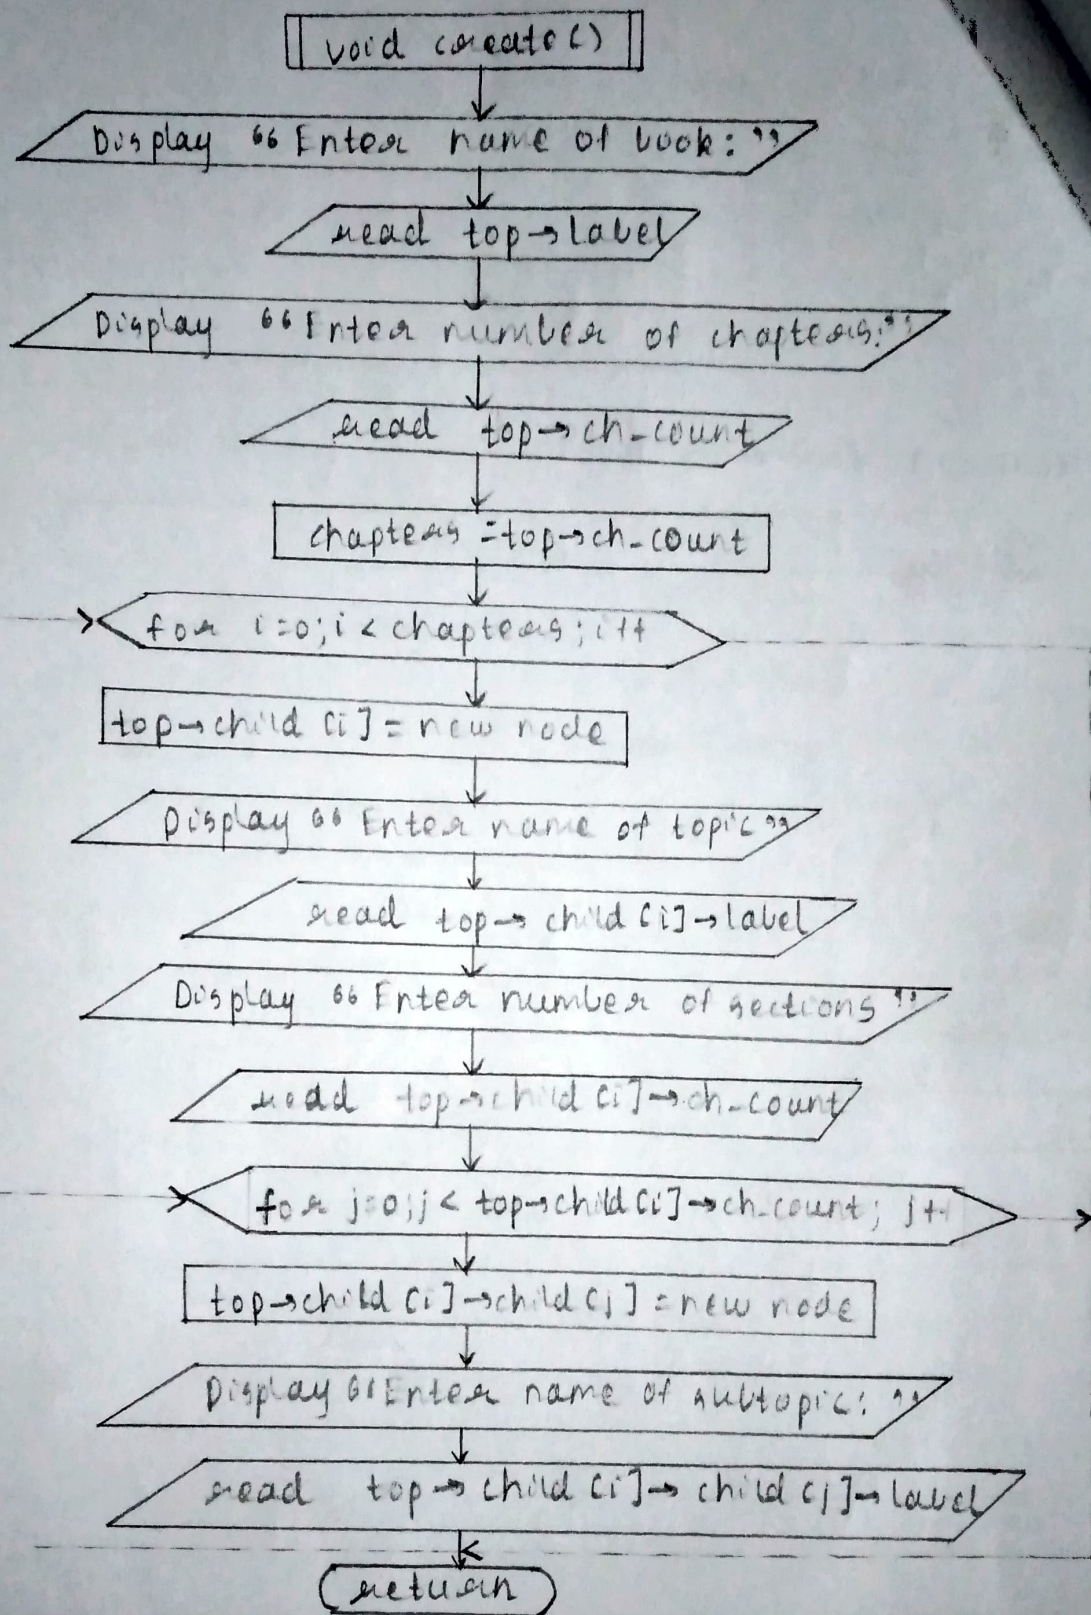 void create()
Display “Enter name of book:”
read top→label
Display “Enter number of chapters:”
read top→ch_count
chapters = top→ch_count
for i=0;i < chapters; i++
top→child [i] = new node
Display “Enter name of topic”
read top→ child [i]→label
Display “Enter number of sections”
read top→child [i]→ch_count
for j=0;j < top→child [i]→ch_count; j++
top→child [i]→child [j] = new node
Display “Enter name of subtopic: ”
read top→ child [i]→ child [j]→label
return